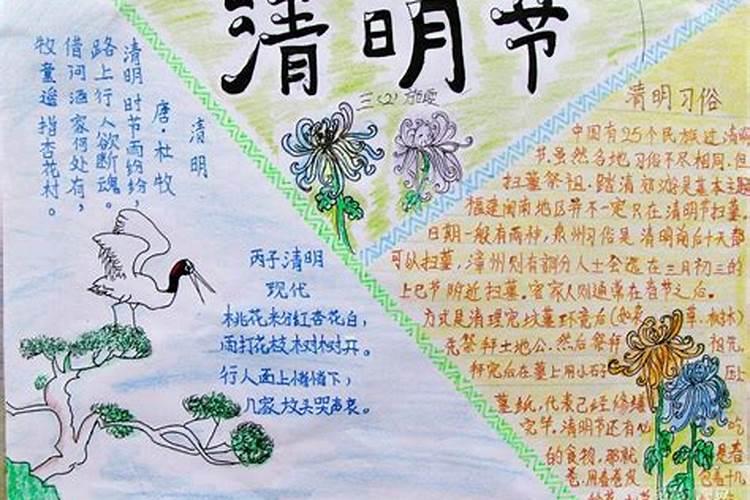 清明节
三(2)
清明
唐·杜牧
清明时节雨纷纷，
路上行人欲断魂。
借问酒家何处有，
牧童遥指杏花村。
丙子清明
现代
桃花粉红杏花白，
雨打花枝树树开。
行人面上悄悄下，
几家坟头哭声哀。
清明习俗
中国有25个民族过清明
节，虽然各地习俗不尽相同，但
扫墓祭祖、踏清郊游是基本主题
福建闽南地区节不一定只在清明节扫墓，
日期一般有两种，泉州习俗是清明前后十天都
可以扫墓，漳州则有部分人士会选在三月初三的
上巳节附近扫墓。客家人则通常在春节之后。
方式是清理完坟墓环境后(如 草、树木)
先祭拜土地公，然后祭拜 祖先，
祭完后在墓上用小石 压上
墓纸，代表已经修缮
完毕，清明节还有 吃
的食物，那就 是春
卷，用春卷皮 包着